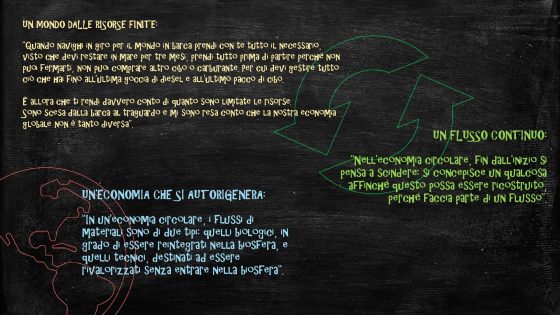 UN MONDO DALLE RISORSE FINITE:
"Quando navighi in giro per il mondo in barca prendi con te tutto il necessario,
visto che devi restare in mare per tre mesi, prendi tutto prima di partire perché non
puoi fermarti, non puoi comprare altro cibo o carburante. per cui devi gestire tutto
ciò che hai fino all'ultima goccia di diesel e all'ultimo pacco di cibo.
E allora che ti rendi davvero conto di quanto sono limitate le risorse.
Sono scesa dalla barca al traguardo e mi sono resa conto che la nostra economia
globale non è tanto diversa".
UN FLUSSO CONTINUO:
"Nell'economia circolare, fin dall'inizio si
pensa a scindere: si concepisce un qualcosa
affinché questo possa essere ricostruito,
perché faccia parte di un flusso"
UN'ECONOMIA CHE SI AUTORIGENERA:
"In un'economia circolare, i flussi di
materiali sono di due tipi: quelli biologici, in
grado di essere reintegrati nella biosfera, e
quelli tecnici, destinati ad essere
rivalorizzati senza entrare nella biosfera".